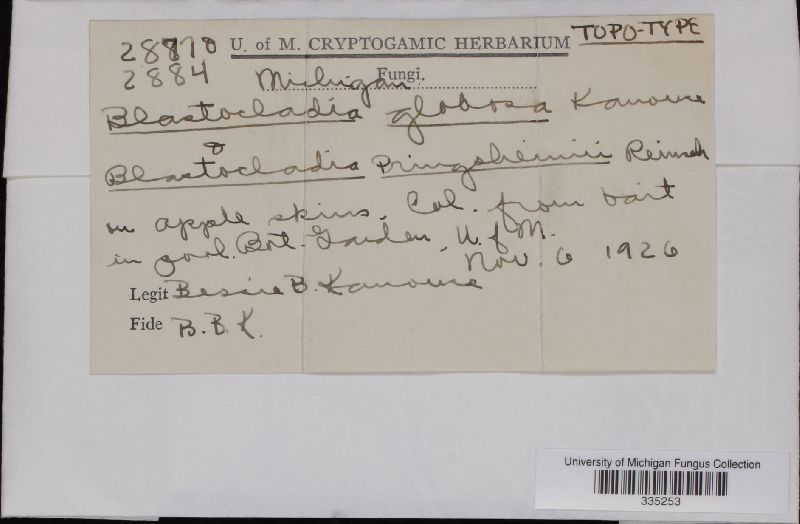 TOPO-TYPE
U. of M. CRYPTOGAMIC HERBARIUM
2884
Michigan Fungi.
Blastocladia globosa Kanouse
&
Blastocladia Pringsheimii Reinsch
on apple skins. Col. from bait
in pool. Bot. Garden, U. of M.
Nov. 6 1926
Legit Bessie B. Kanouse
Fide B. B. K.
University of Michigan Fungus Collection
335253